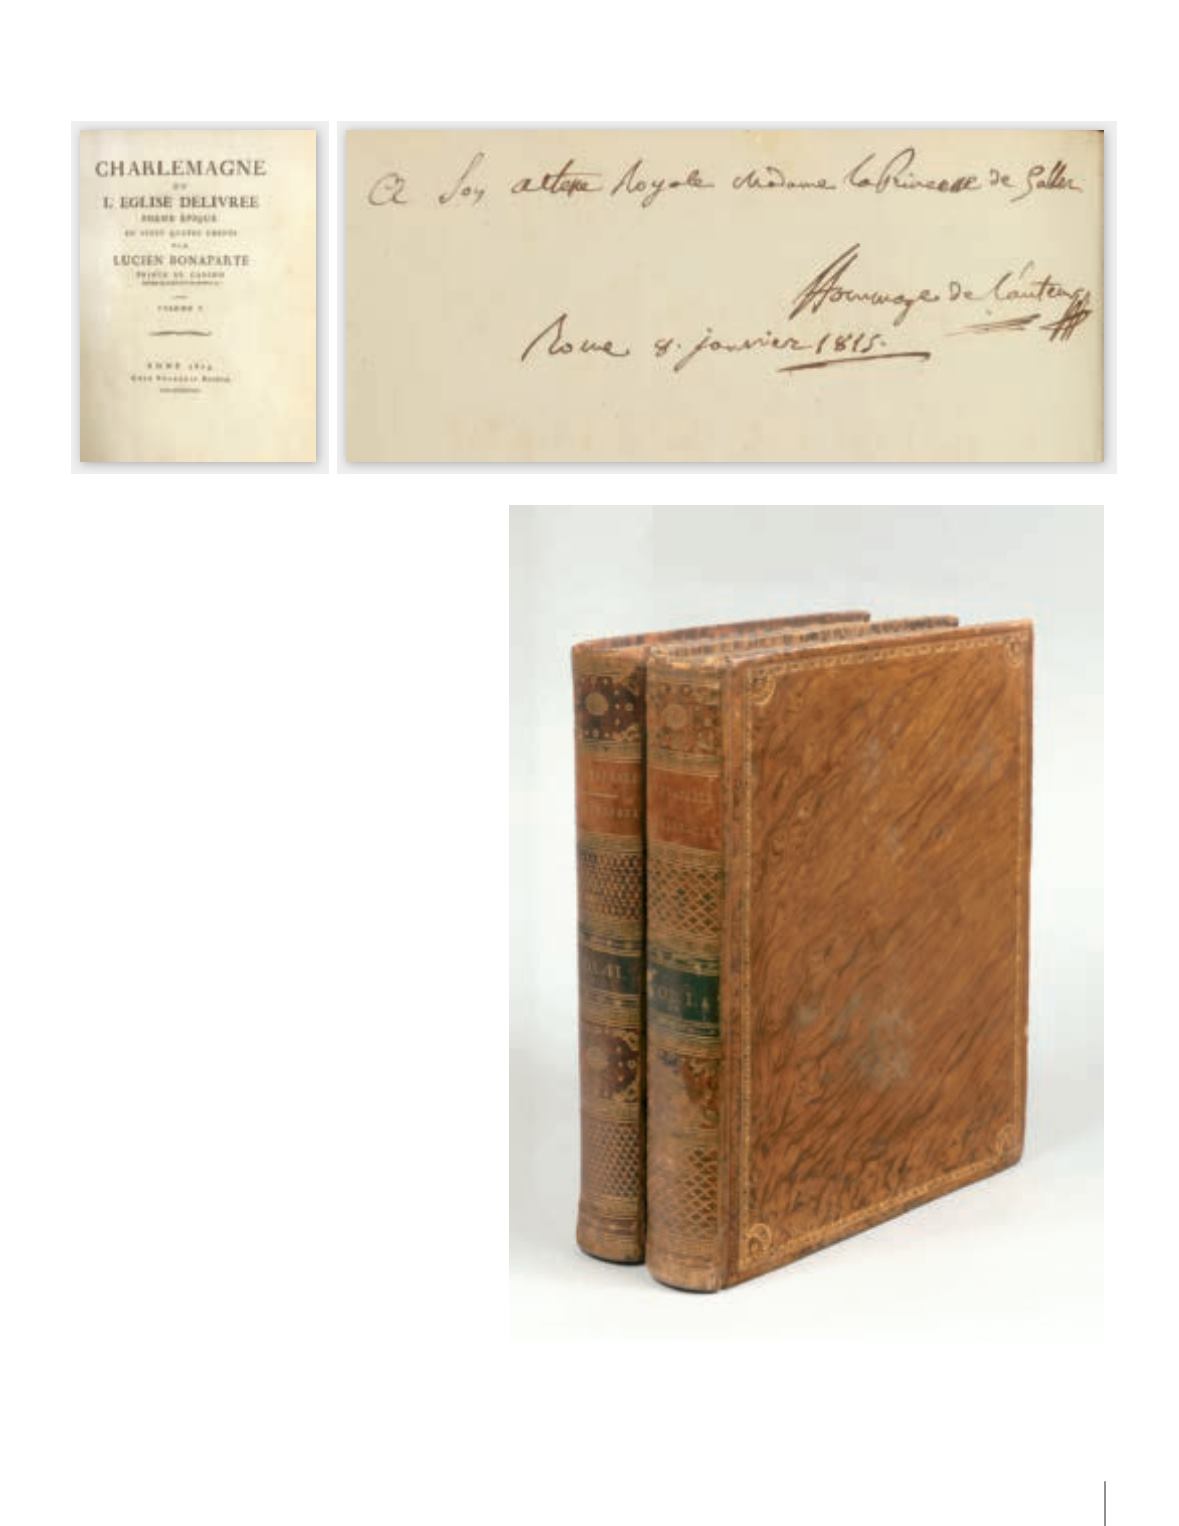 CHARLEMAGNE
OU
L'EGLISE DÉLIVRÉE
POEME ÉPIQUE
EN VINGT QUATRE CHANTS
PAR
LUCIEN BONAPARTE
PRINCE DE CANINO
VOLUME I
ROME
A Son altesse Royale Madame la Princesse de Galles
Hommage de l'auteur
Rome 8. janvier 1815.